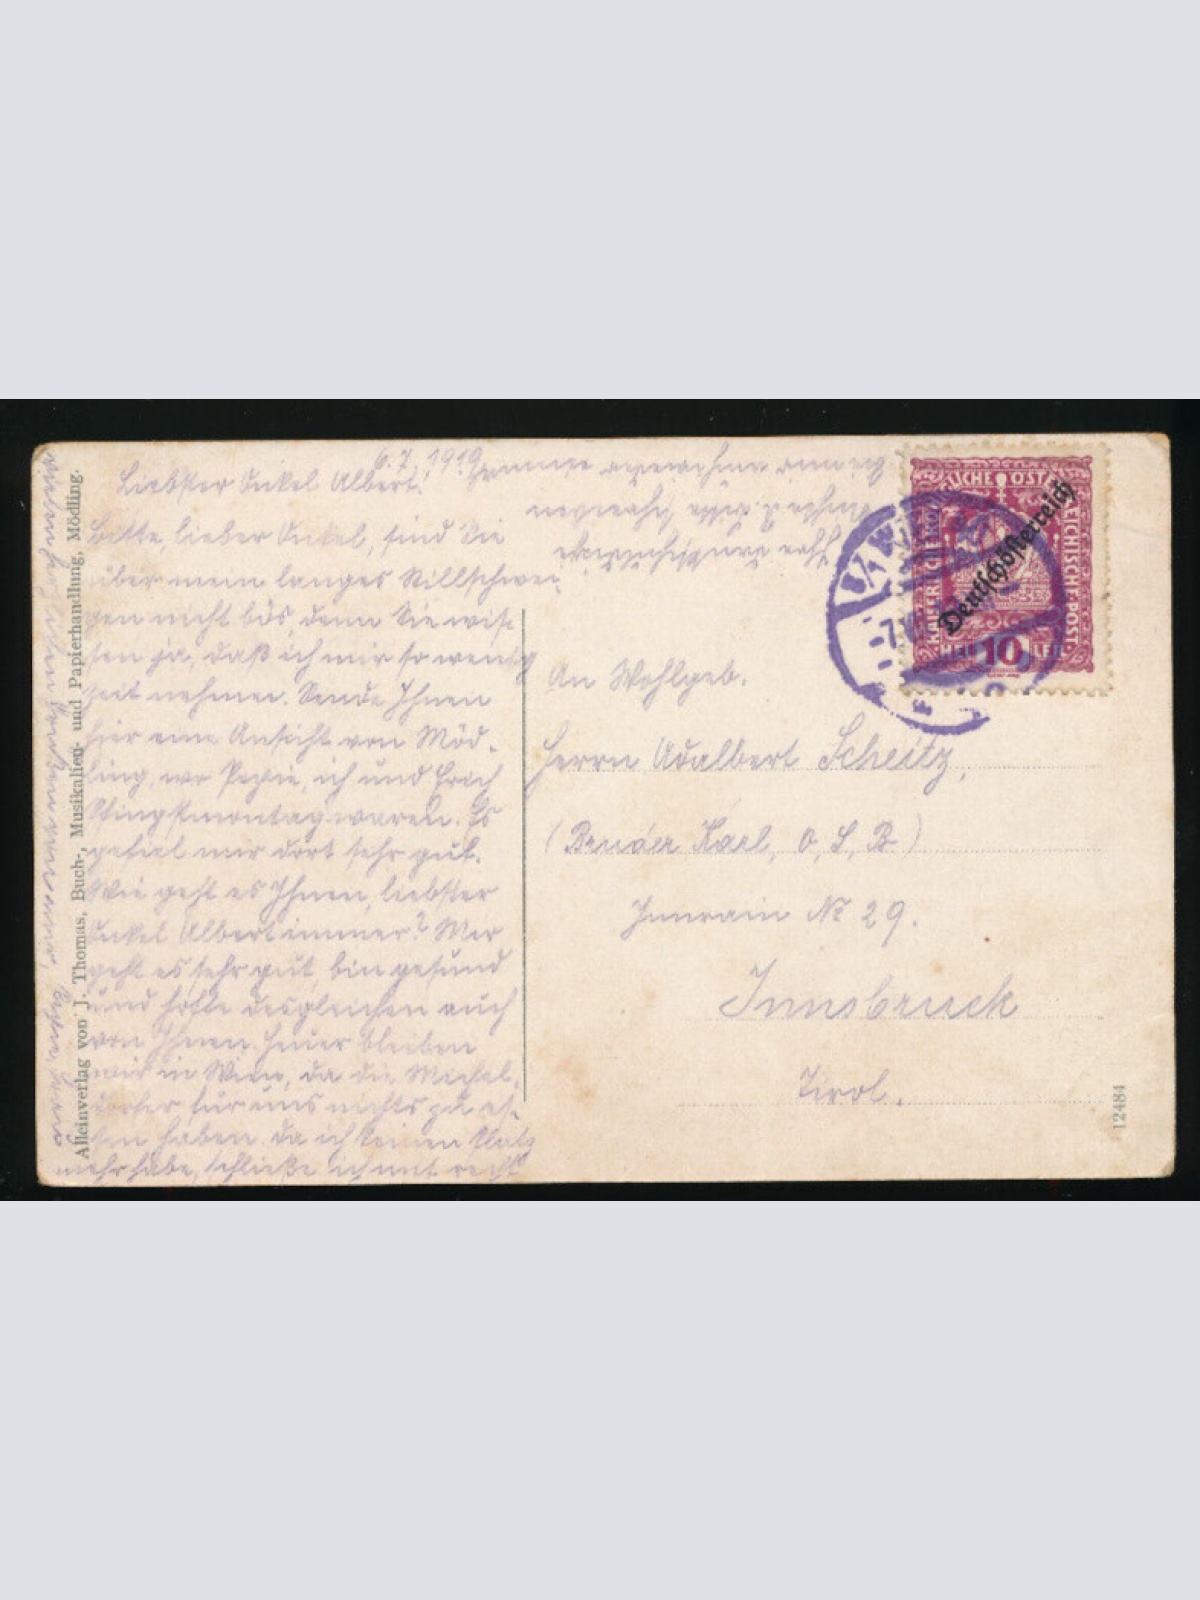 6.7.1919
Liebster Onkel Albert!
Bitte, lieber Onkel, sind Sie
über mein langes Stillschwei-
gen nicht bös, denn Sie wis-
sen ja, daß ich mir so wenig
Zeit nehmen. Sende Ihnen
hier eine Ansicht von Möd-
ling, wo Pepie, ich und Erich
Pfingstmontag waren. Es
gefiel mir dort sehr gut.
Wie geht es Ihnen, liebster
Onkel Albert immer? Mir
geht es sehr gut, bin gesund
und hoffe desgleichen auch
von Ihnen. Heuer bleiben
wir in Wien, da die
für uns nichts zu es-
sen haben. Da ich keinen Platz
mehr habe, schließe ich mit recht
An Wohlgeb.
Herrn Adalbert Scheitz,
(Bruder Karl, O, S, B)
Innrain № 29.
Innsbruck
Tirol.
KAISERLICHE KÖNIGLICHE ÖSTERREICHISCHE POST
Deutschösterreich
HELLER 10 HELLER
8/1 WIEN
-7
Alleinverlag von J. Thomas, Buch-, Musikalien- und Papierhandlung, Mödling.
12484